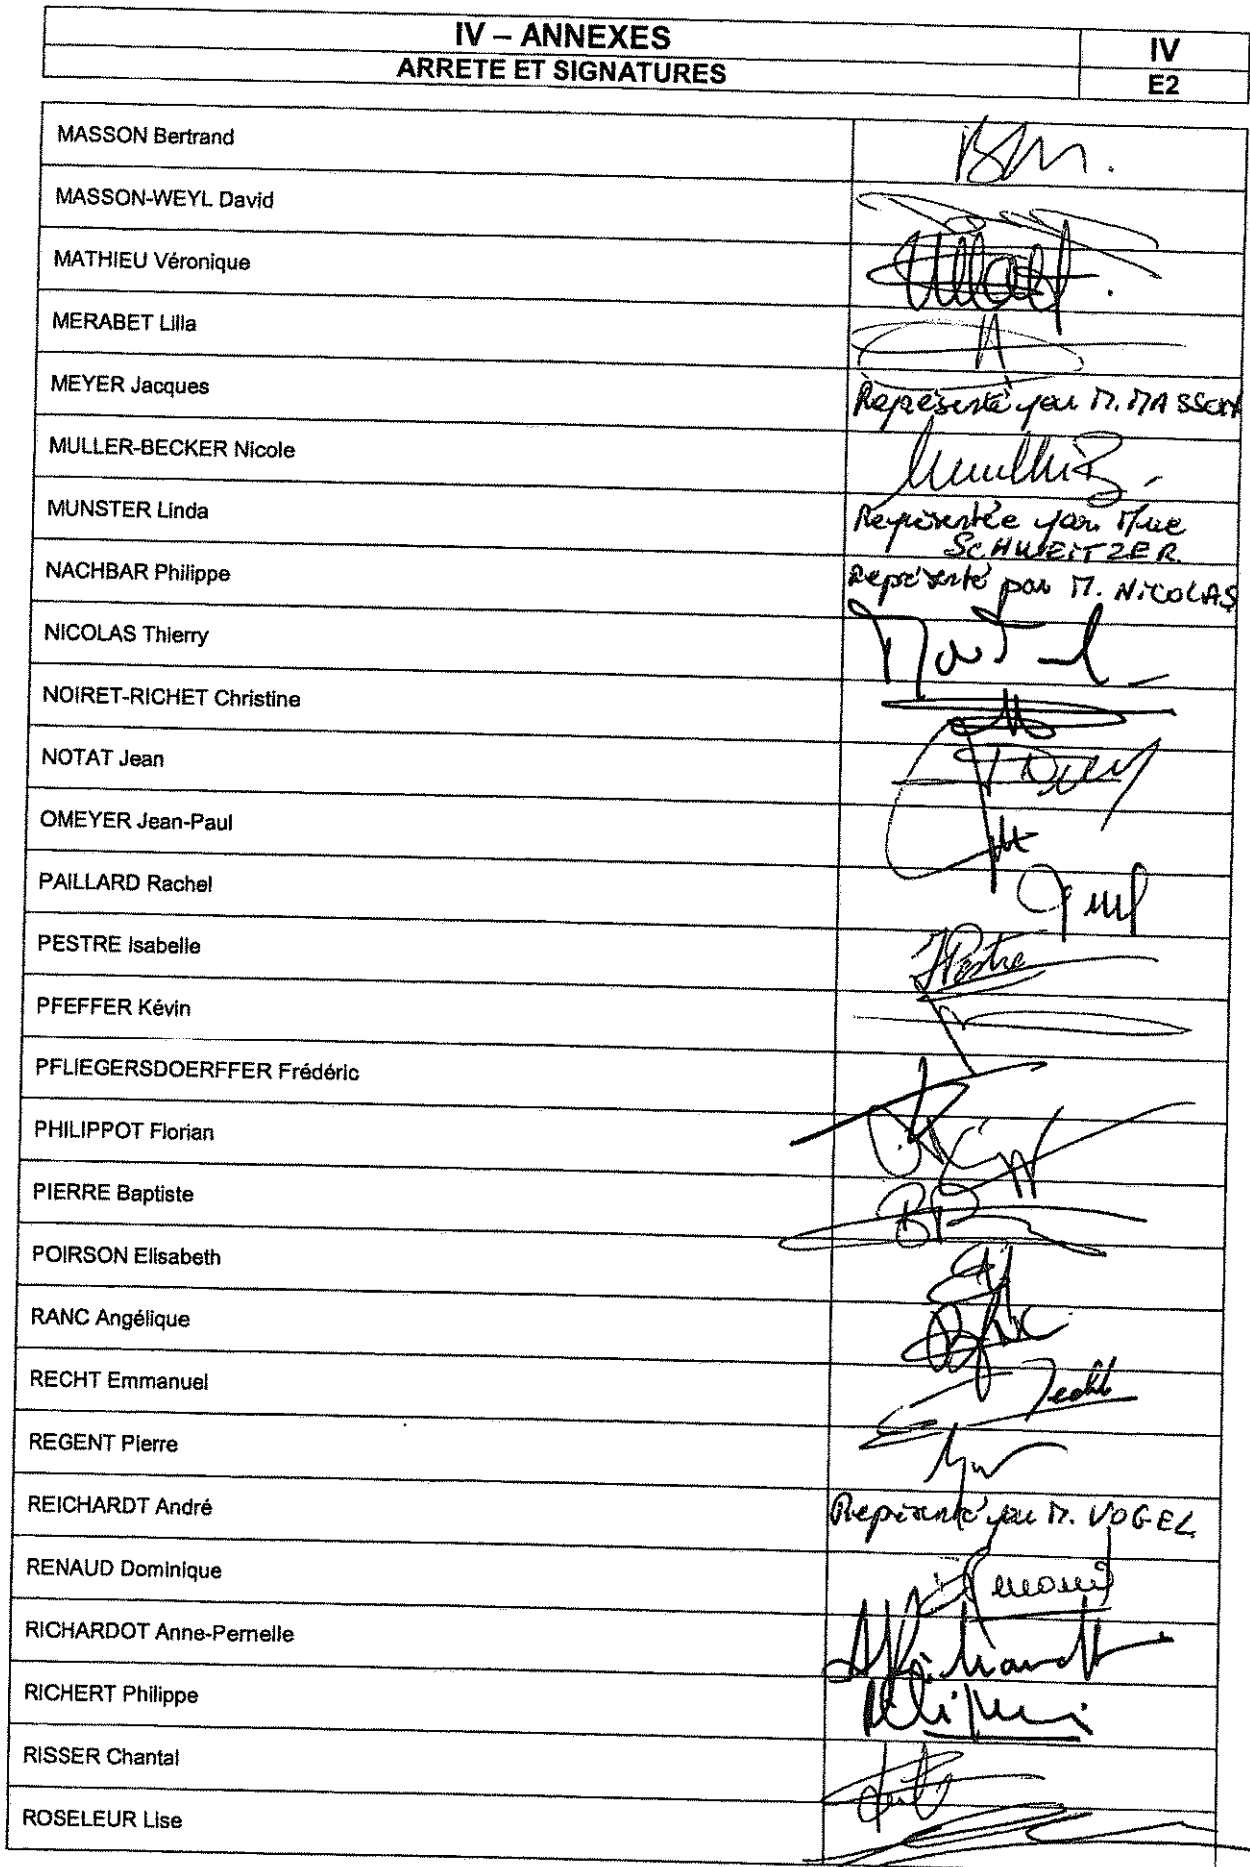 IV – ANNEXES
IV
ARRETE ET SIGNATURES
E2
MASSON Bertrand
MASSON-WEYL David
MATHIEU Véronique
MERABET Lilla
MEYER Jacques
Représenté par M. MASSON
MULLER-BECKER Nicole
MUNSTER Linda
Représentée par Mme
SCHWEITZER.
NACHBAR Philippe
Représenté par M. NICOLAS
NICOLAS Thierry
NOIRET-RICHET Christine
NOTAT Jean
OMEYER Jean-Paul
PAILLARD Rachel
PESTRE Isabelle
PFEFFER Kévin
PFLIEGERSDOERFFER Frédéric
PHILIPPOT Florian
PIERRE Baptiste
POIRSON Elisabeth
RANC Angélique
RECHT Emmanuel
REGENT Pierre
REICHARDT André
Représenté par M. VOGEL
RENAUD Dominique
RICHARDOT Anne-Pernelle
RICHERT Philippe
RISSER Chantal
ROSELEUR Lise